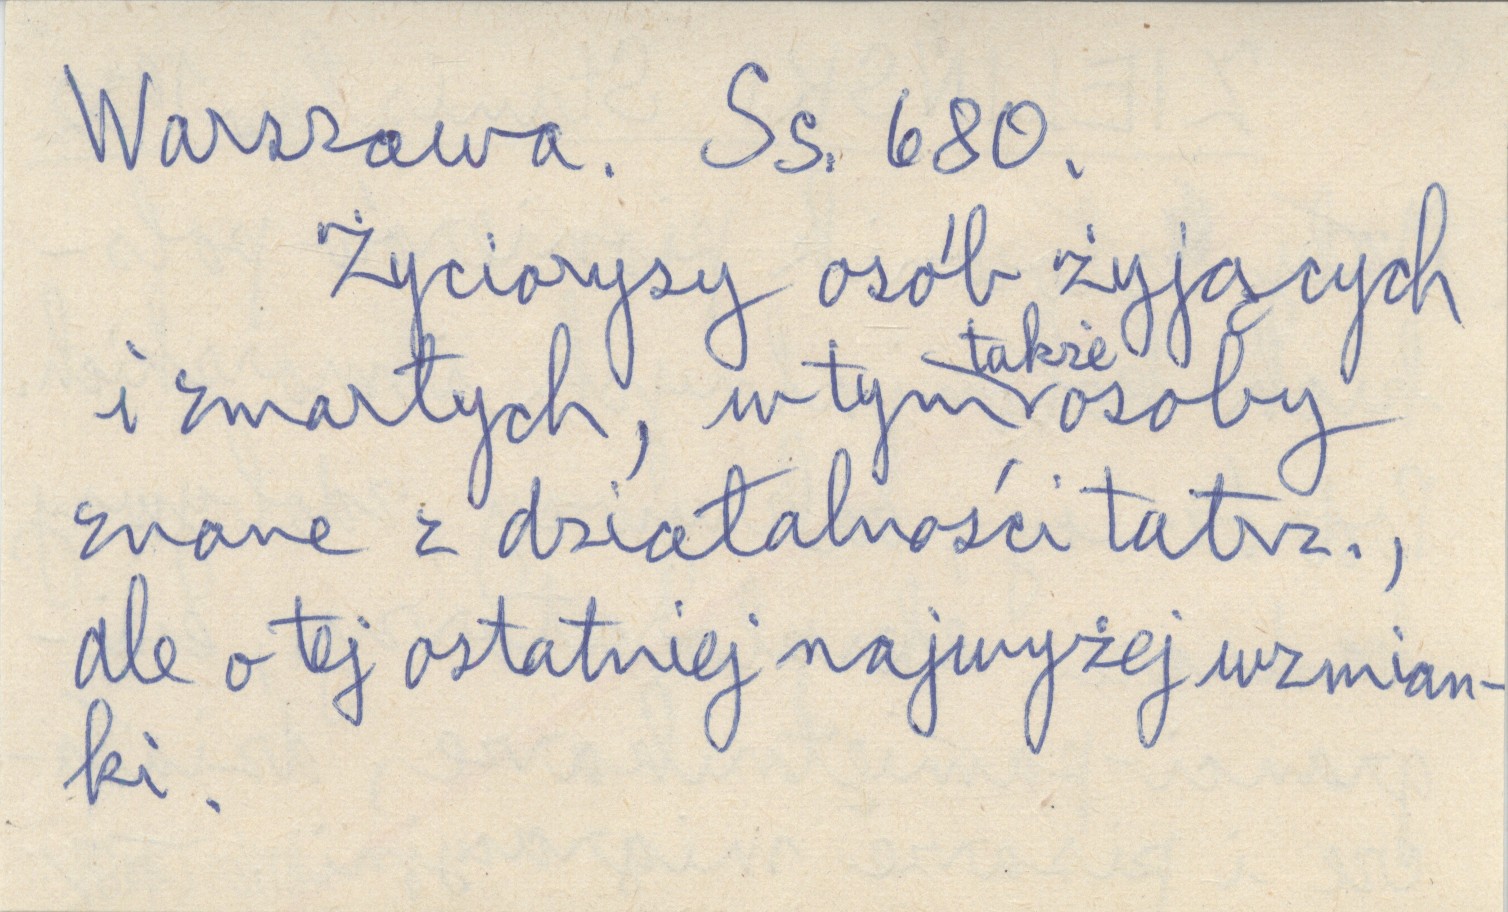 Warszawa. Ss. 680.
Życiorysy osób żyjących
i zmarłych, w tym także osoby
znane z działalności tatrz.,
ale o tej ostatniej najwyżej wzmian-
ki.